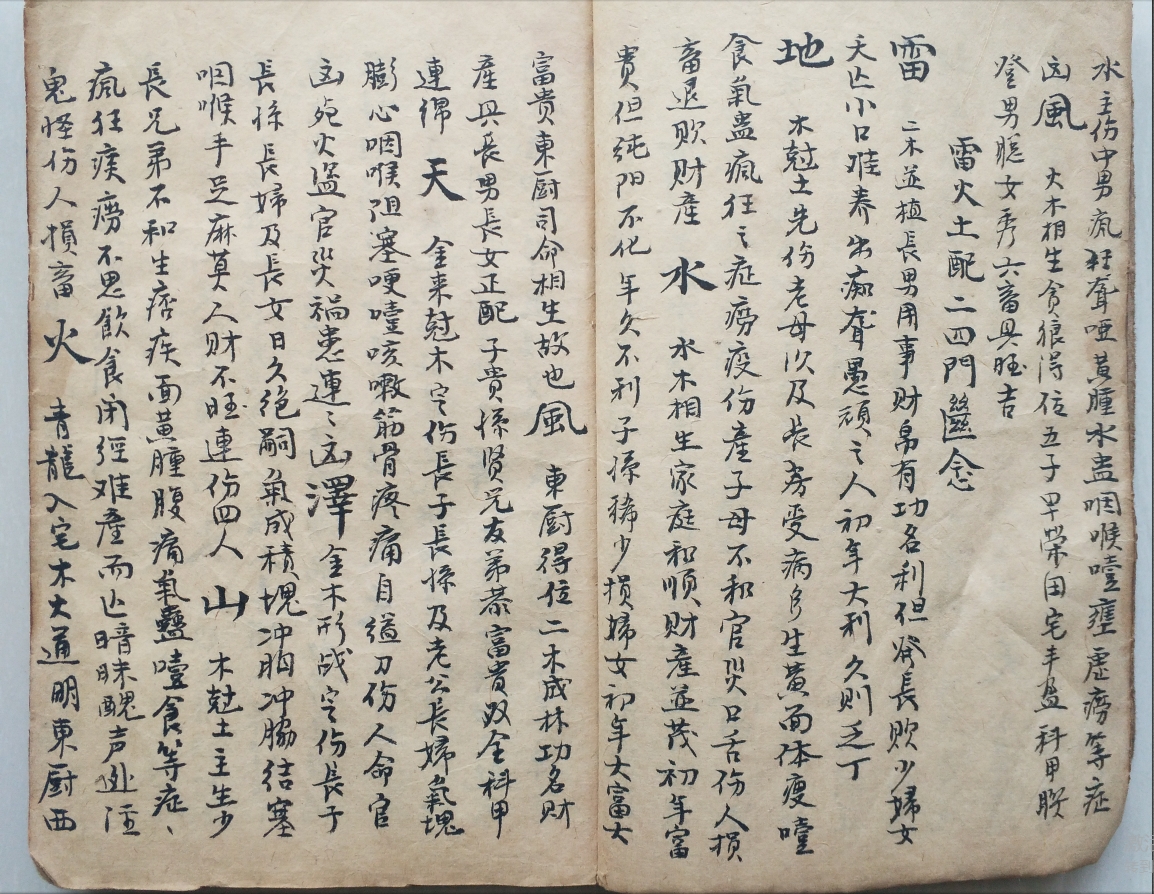 水主伤中男疯狂聋哑黄腫水蛊咽喉噎壅虚痨等症
凶風　火木相生貪狼得位五子早荣田宅丰盈科甲联
登男聪女秀六畜興旺吉
雷火土配二四門
雷　二木並植長男用事财帛有功名利但發長败少婦女
夭亡小口难养出痴聋愚頑之人初年大利久则乏丁
地　木尅土先伤老母次及长房受病多生黄面体瘦噎
食氣蛊疯狂之症痨疫伤產子母不和官災口舌伤人損
畜退败财產　水　水木相生家庭和順财產並茂初年富
貴但纯阳不化年久不利子孫稀少損婦女初年大富大
富貴東厨司命相生故也風　東厨得位二木成林功名财
產興長男長女正配子貴孫贤兄友弟恭富貴双全科甲
連绵　天　金来尅木定伤長子長孫及老公長婦氣塊
膨心咽喉阻塞哽噎咳嗽筋骨疼痛自缢刀伤人命官
凶　火盗官災禍患連々凶澤金木形战定伤長子
長孫長婦及長女日久绝嗣氣成積塊冲胸冲脇结塞
咽喉手足麻莫人财不旺連伤四人　山　木尅土主生少
長兄弟不和生痞疾面黄腫腹痛氣蠱噎食等症、
疯狂疾痨不思飲食闭經难產而亡暗昧醜声
鬼怪伤人損畜　火　青龍入宅木火通明東厨西